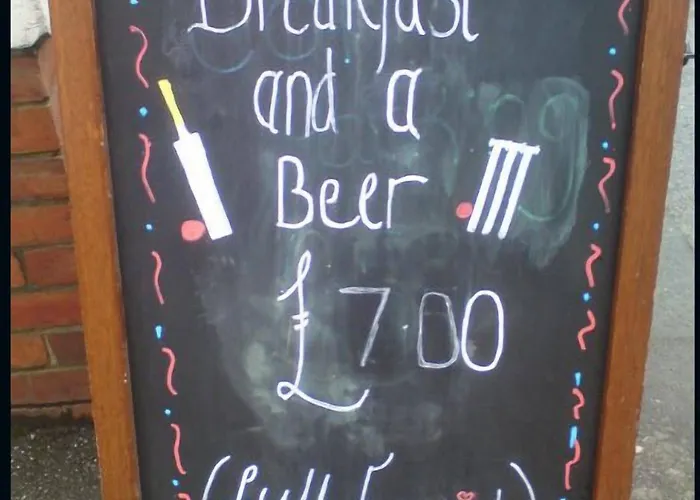 Breakfast
and a
Beer
£7.00
(Full